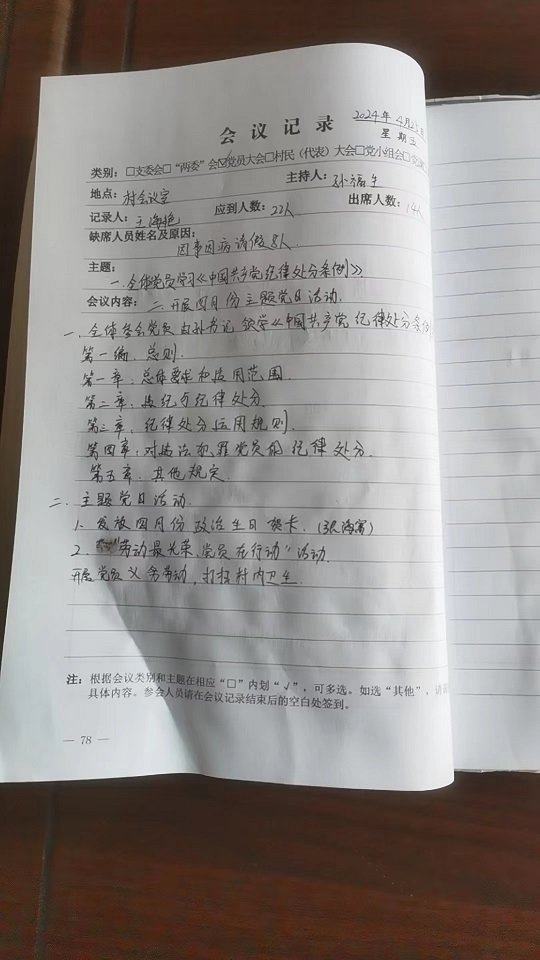 会 议 记 录
2024年4月2
星期五
类别：□支委会□“两委”会☑党员大会□村民（代表）大会□党小组会□
地点：村会议室 主持人：孙福生
记录人：王海艳 应到人数：22人 出席人数：14人
缺席人员姓名及原因：
因事因病请假8人
主题：
一.全体党员学习《中国共产党纪律处分条例》
会议内容：二.开展四月份主题党日活动.
一、全体参会党员由孙书记领学《中国共产党纪律处分条例
第一编、总则.
第一章：总体要求和适用范围.
第二章、违纪与纪律处分.
第三章、纪律处分运用规则.
第四章：对违法犯罪党员的纪律处分.
第五章、其他规定.
二、主题党日活动.
1、发放四月份政治生日贺卡.（张海富）
2. 劳动最光荣、党员在行动”活动.
开展党员义务劳动，打扫村内卫生.
注：根据会议类别和主题在相应“□”内划“√”，可多选。如选“其他”，请
具体内容。参会人员请在会议记录结束后的空白处签到。
— 78 —